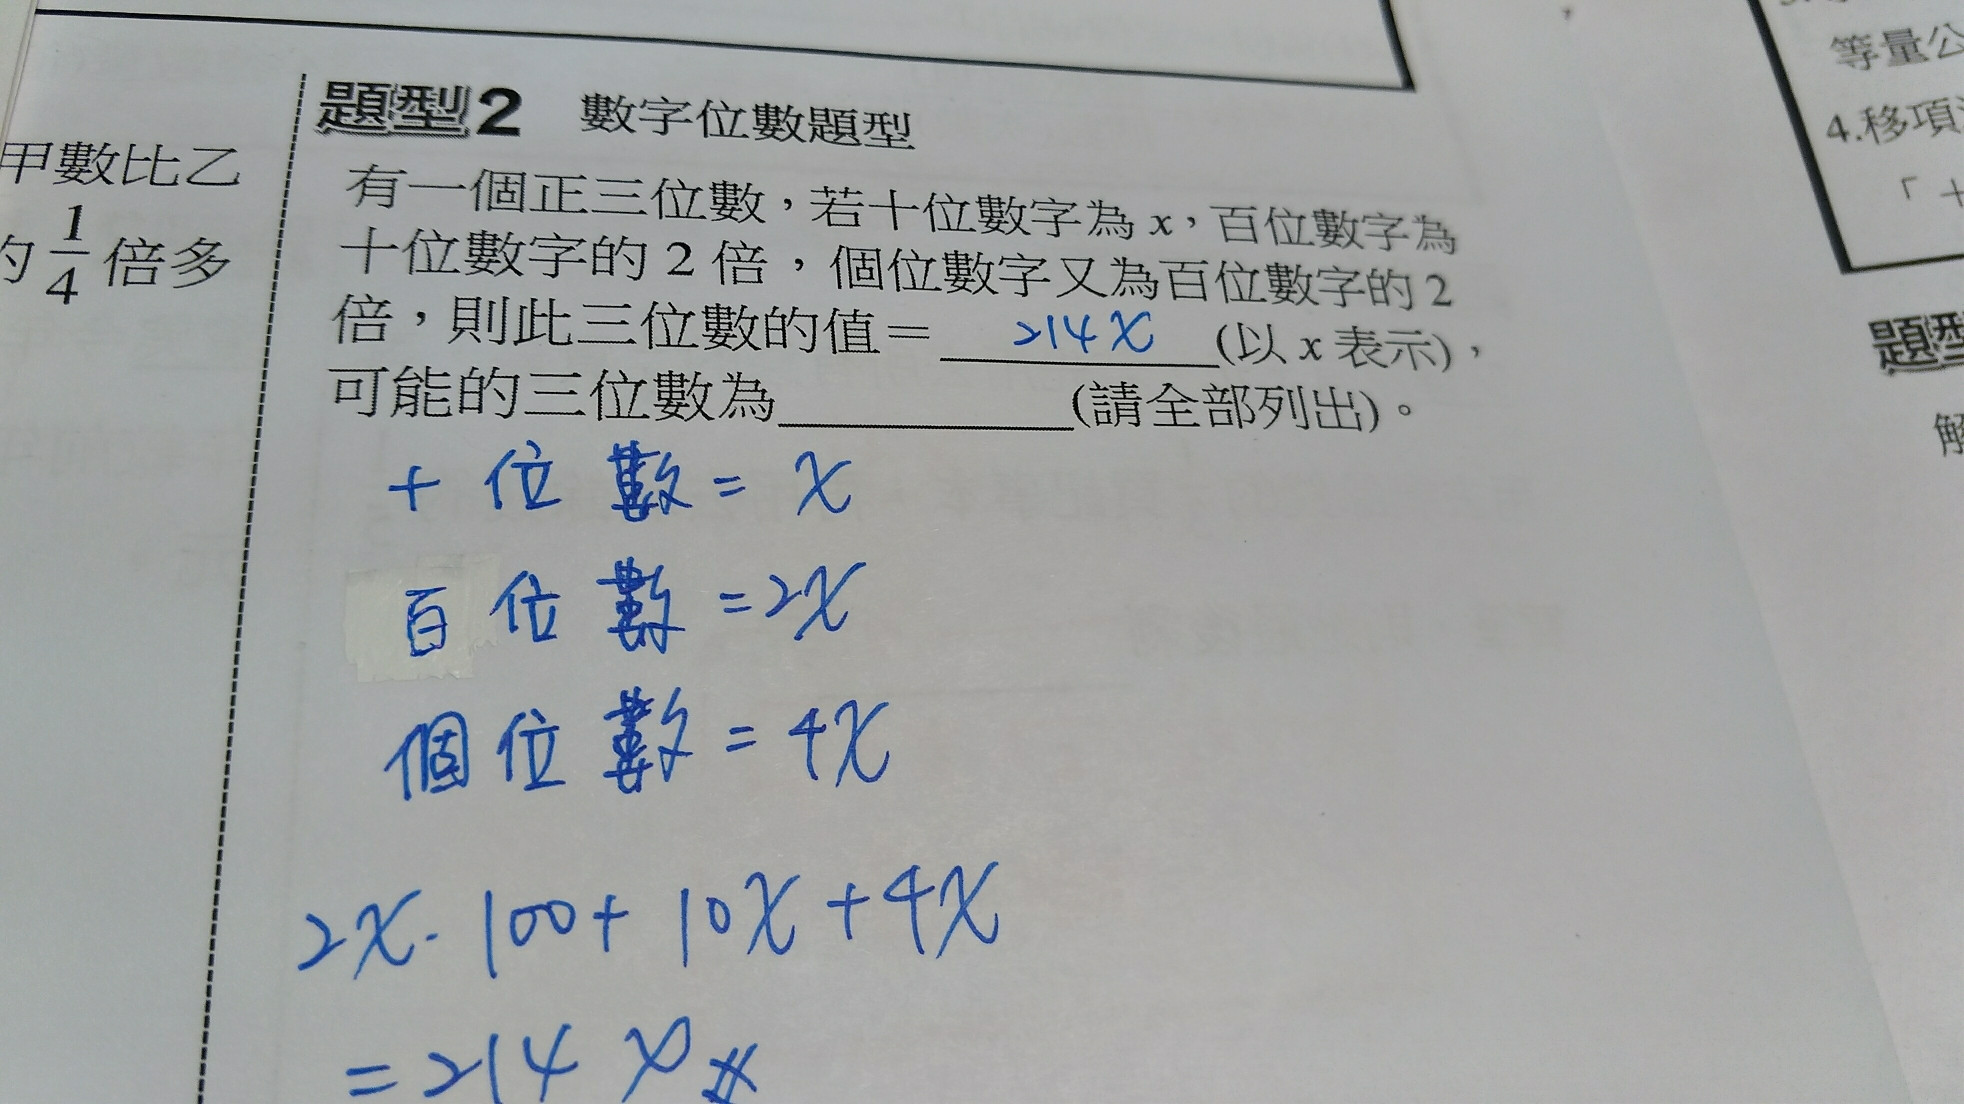 甲數比乙
的 1/4 倍多
題型2 數字位數題型
有一個正三位數，若十位數字為 x，百位數字為
十位數字的 2 倍，個位數字又為百位數字的 2
倍，則此三位數的值＝ 214x (以 x 表示)，
可能的三位數為__________(請全部列出)。
十位數 = x
百位數 = 2x
個位數 = 4x
2x · 100 + 10x + 4x
= 214x #
等量公
4.移項
「十
題型
解